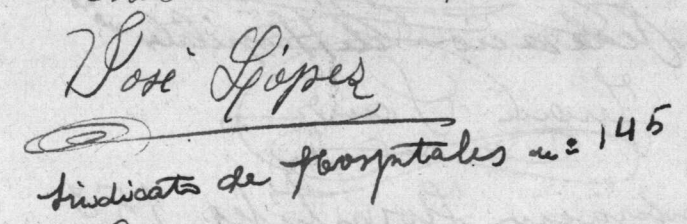 José López
Sindicato de Hospitales nº 145